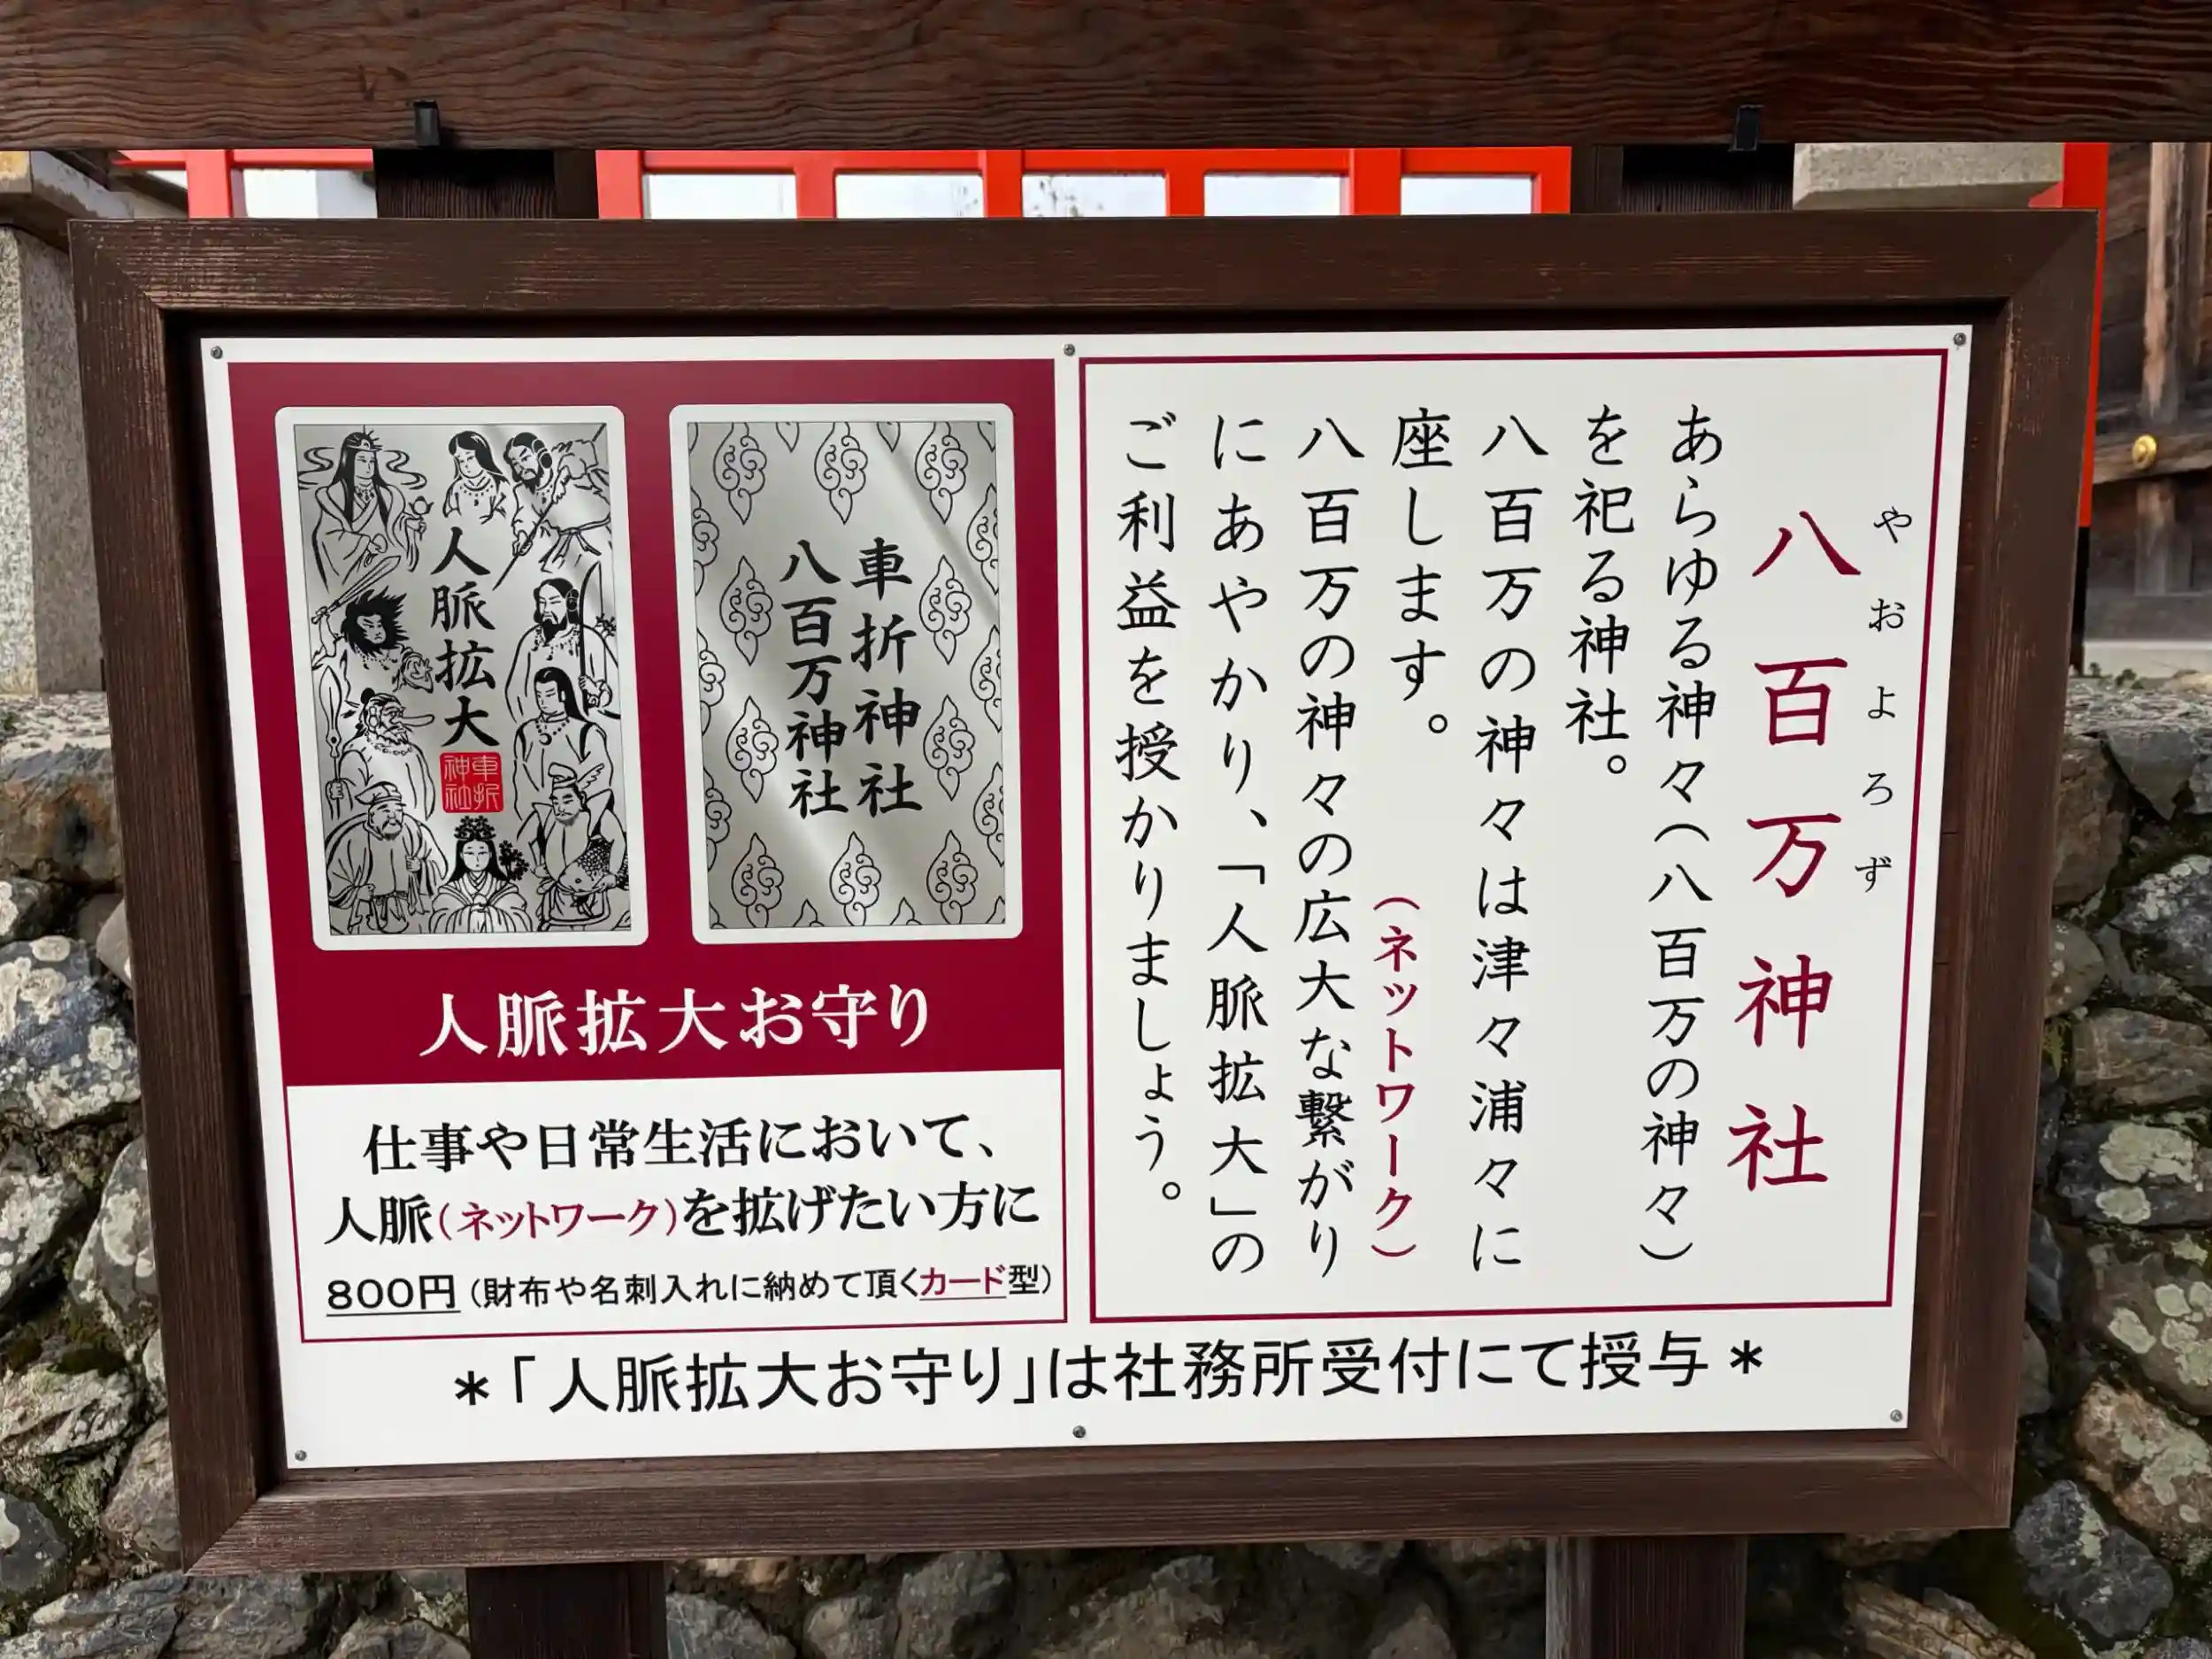 八百万神社
やおよろず
あらゆる神々(八百万の神々)
を祀る神社。
八百万の神々は津々浦々に
座します。
(ネットワーク)
八百万の神々の広大な繋がり
にあやかり、「人脈拡大」の
ご利益を授かりましょう。
人脈拡大
車折
神社
車折神社
八百万神社
人脈拡大お守り
仕事や日常生活において、
人脈(ネットワーク)を拡げたい方に
800円(財布や名刺入れに納めて頂くカード型)
*「人脈拡大お守り」は社務所受付にて授与*